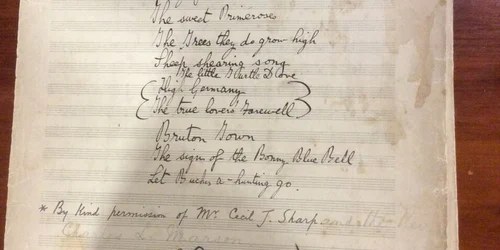 The sweet Primeroses
The Trees they do grow high
Sheep shearing song
The little Turtle Dove
High Germany
The true lovers' Farewell
Bruton Town
The sign of the Bonny Blue Bell
Let Bucks a-hunting go.
* By Kind permission of Mr Cecil J. Sharp